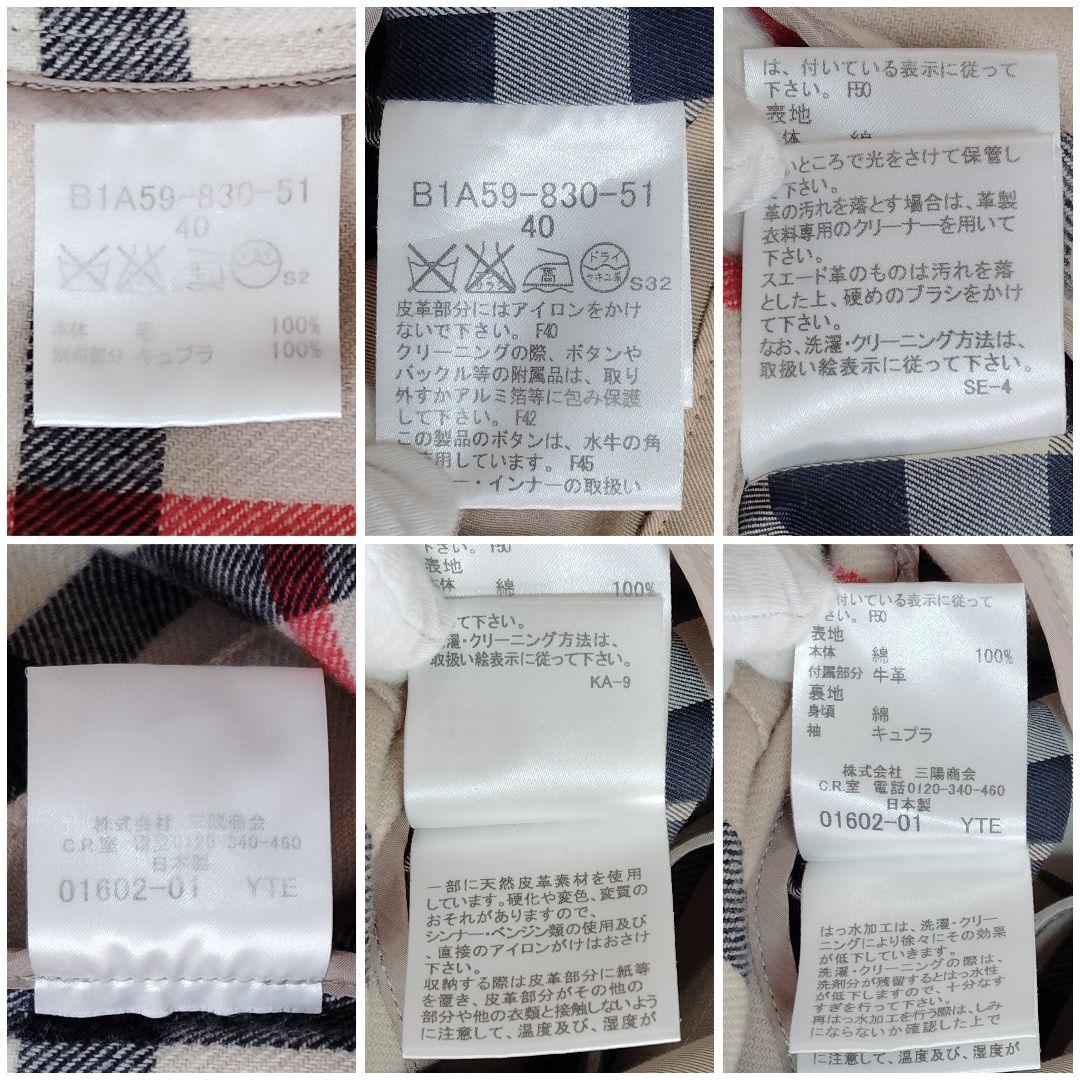 B1A59-830-51
40
S2
本体 毛 100%
別布部分 キュプラ 100%
B1A59-830-51
40
ドライ
セキユ系
S32
皮革部分にはアイロンをかけ
ないで下さい。 F40
クリーニングの際、ボタンや
バックル等の附属品は、取り
外すかアルミ箔等に包み保護
して下さい。 F42
この製品のボタンは、水牛の角
用しています。 F45
ー・インナーの取扱い
は、付いている表示に従って
下さい。 F50
表地
体 綿
いところで光をさけて保管し
下さい。
革の汚れを落とす場合は、革製
衣料専用のクリーナーを用いて
下さい。
スエード革のものは汚れを落
とした上、硬めのブラシをかけ
て下さい。
なお、洗濯・クリーニング方法は、
取扱い絵表示に従って下さい。
SE-4
株式会社 三陽商会
C.R.室 電話0120-340-460
日本製
01602-01 YTE
下さい。 F50
表地
本体 綿 100%
て下さい。
濯・クリーニング方法は、
取扱い絵表示に従って下さい。
KA-9
一部に天然皮革素材を使用
しています。硬化や変色、変質の
おそれがありますので、
シンナー・ベンジン類の使用及び
、直接のアイロンがけはおさけ
下さい。
収納する際は皮革部分に紙等
を置き、皮革部分がその他の
部分や他の衣類と接触しないよう
に注意して、温度及び、湿度が
付いている表示に従って
さい。 F50
表地
本体 綿 100%
付属部分 牛革
裏地
身頃 綿
袖 キュプラ
株式会社 三陽商会
C.R.室 電話0120-340-460
日本製
01602-01 YTE
はっ水加工は、洗濯・クリー
ニングにより徐々にその効果
が低下していきます。
洗濯・クリーニングの際は、
洗剤分が残留するとはっ水性
が低下しますので、十分なす
すぎを行って下さい。
再はっ水加工を行う際は、しみ
にならないか確認した上で
に注意して、温度及び、湿度が